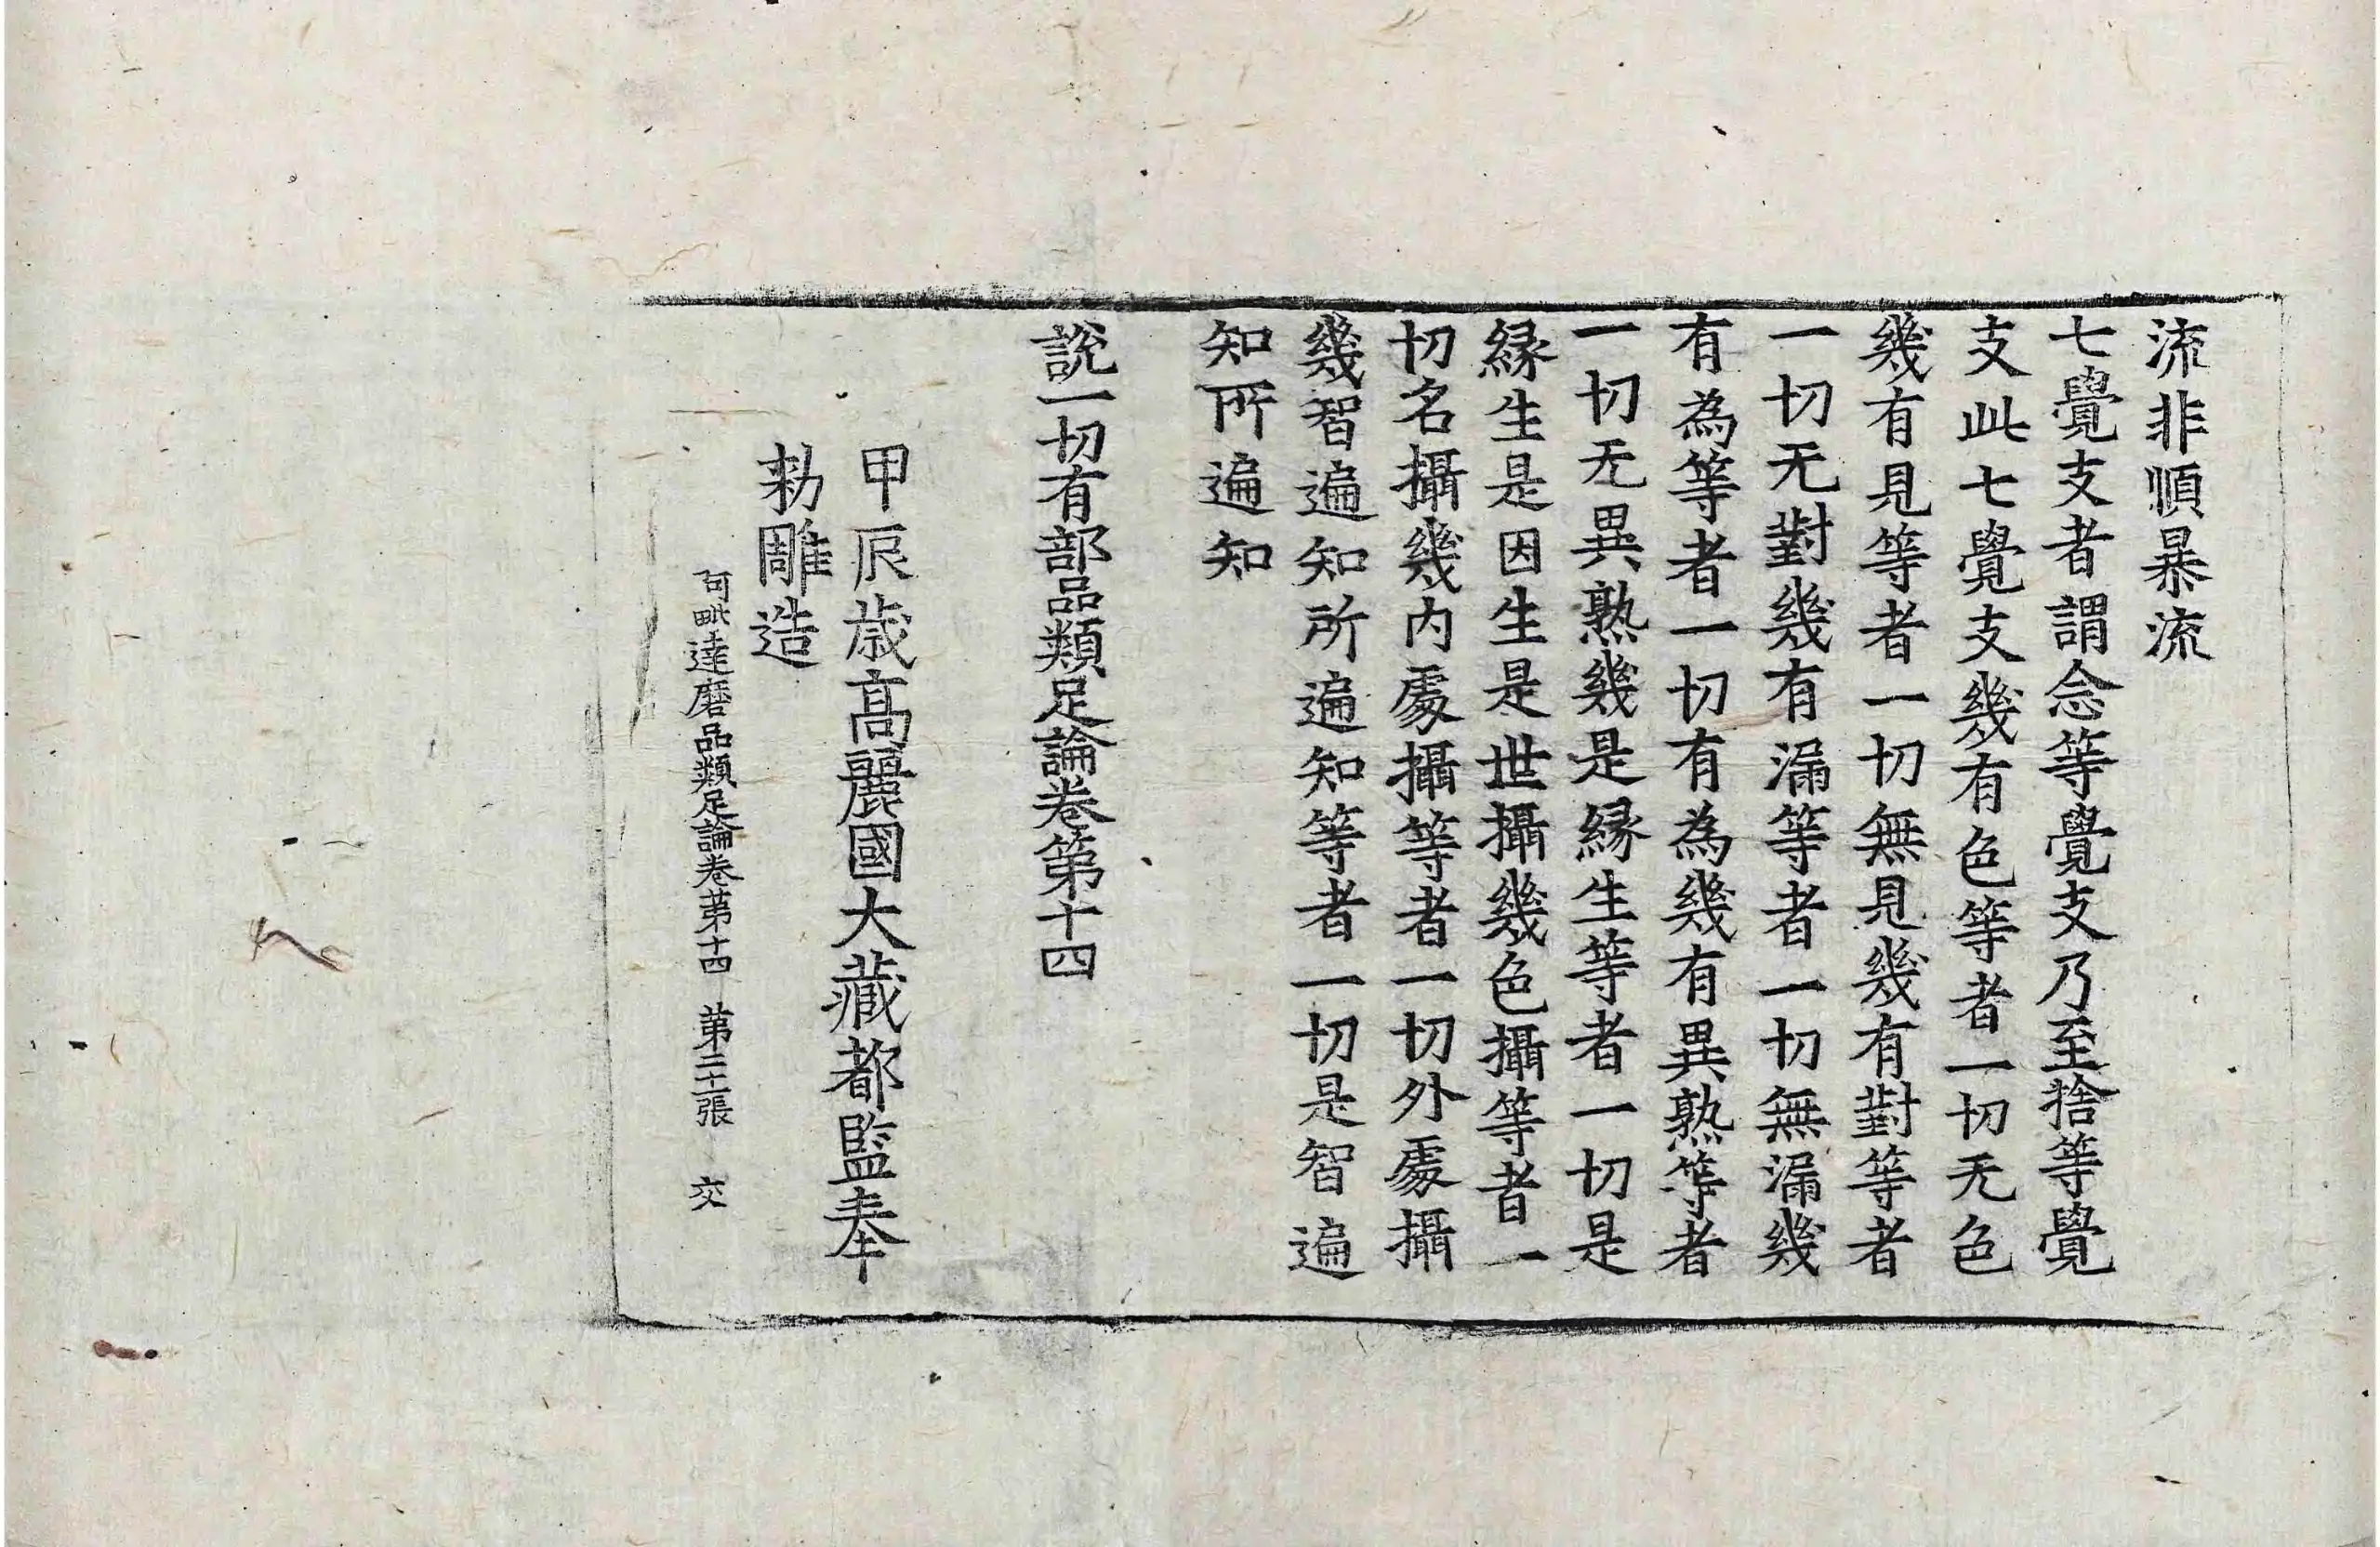 流非順暴流
七覺支者謂念等覺支乃至捨等覺
支此七覺支幾有色等者一切无色
幾有見等者一切無見幾有對等者
一切无對幾有漏等者一切無漏幾
有為等者一切有為幾有異熟等者
一切无異熟幾是縁生等者一切是
縁生是因生是世攝幾色攝等者一
切名攝幾內處攝等者一切外處攝
幾智遍知所遍知等者一切是智遍
知所遍知
說一切有部品類足論卷第十四
甲辰歳高麗國大藏都監奉
勑雕造
阿毗達磨品類足論卷苐十四 苐二十張 交